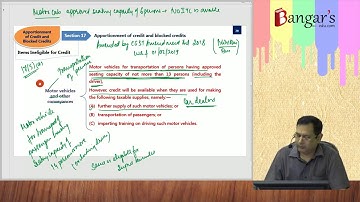 Motor Cab approved seating capacity of 6 persons → No ITC is available
Bangar's
edu.com
Apportionment
of Credit and
Blocked Credits
Section 17
Apportionment of credit and blocked credits
Amended by CGST Amendment Act 2018
w.e.f 01/02/2019
Items Ineligible for Credit
17(5)(a)
Transportation of persons
Motor vehicles for transportation of persons having approved
seating capacity of not more than 13 persons (including the
driver).
However, credit will be available when they are used for making
the following taxable supplies, namely:-
(A) further supply of such motor vehicles; or
Car dealers
(B) transportation of passengers; or
(C) imparting training on driving such motor vehicles
Motor vehicles
and other
conveyances
Motor vehicle
for transport
passenger having
seating capacity of
13 persons or
(including driver)